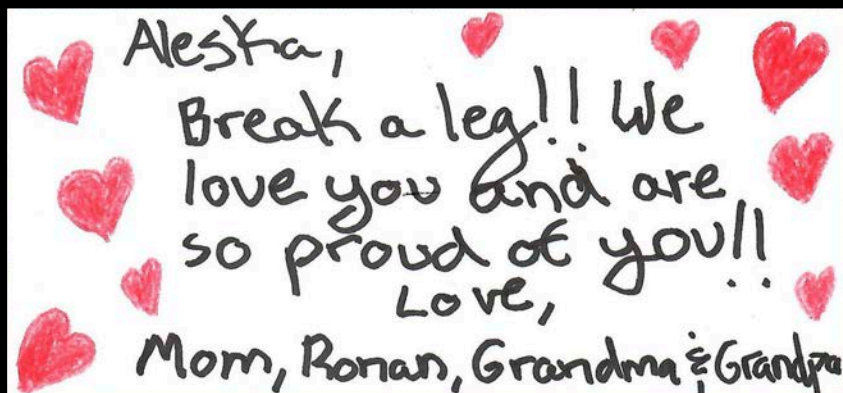 Aleska,
Break a leg!! We
love you and are
so proud of you!!
Love,
Mom, Ronan, Grandma & Grandpa